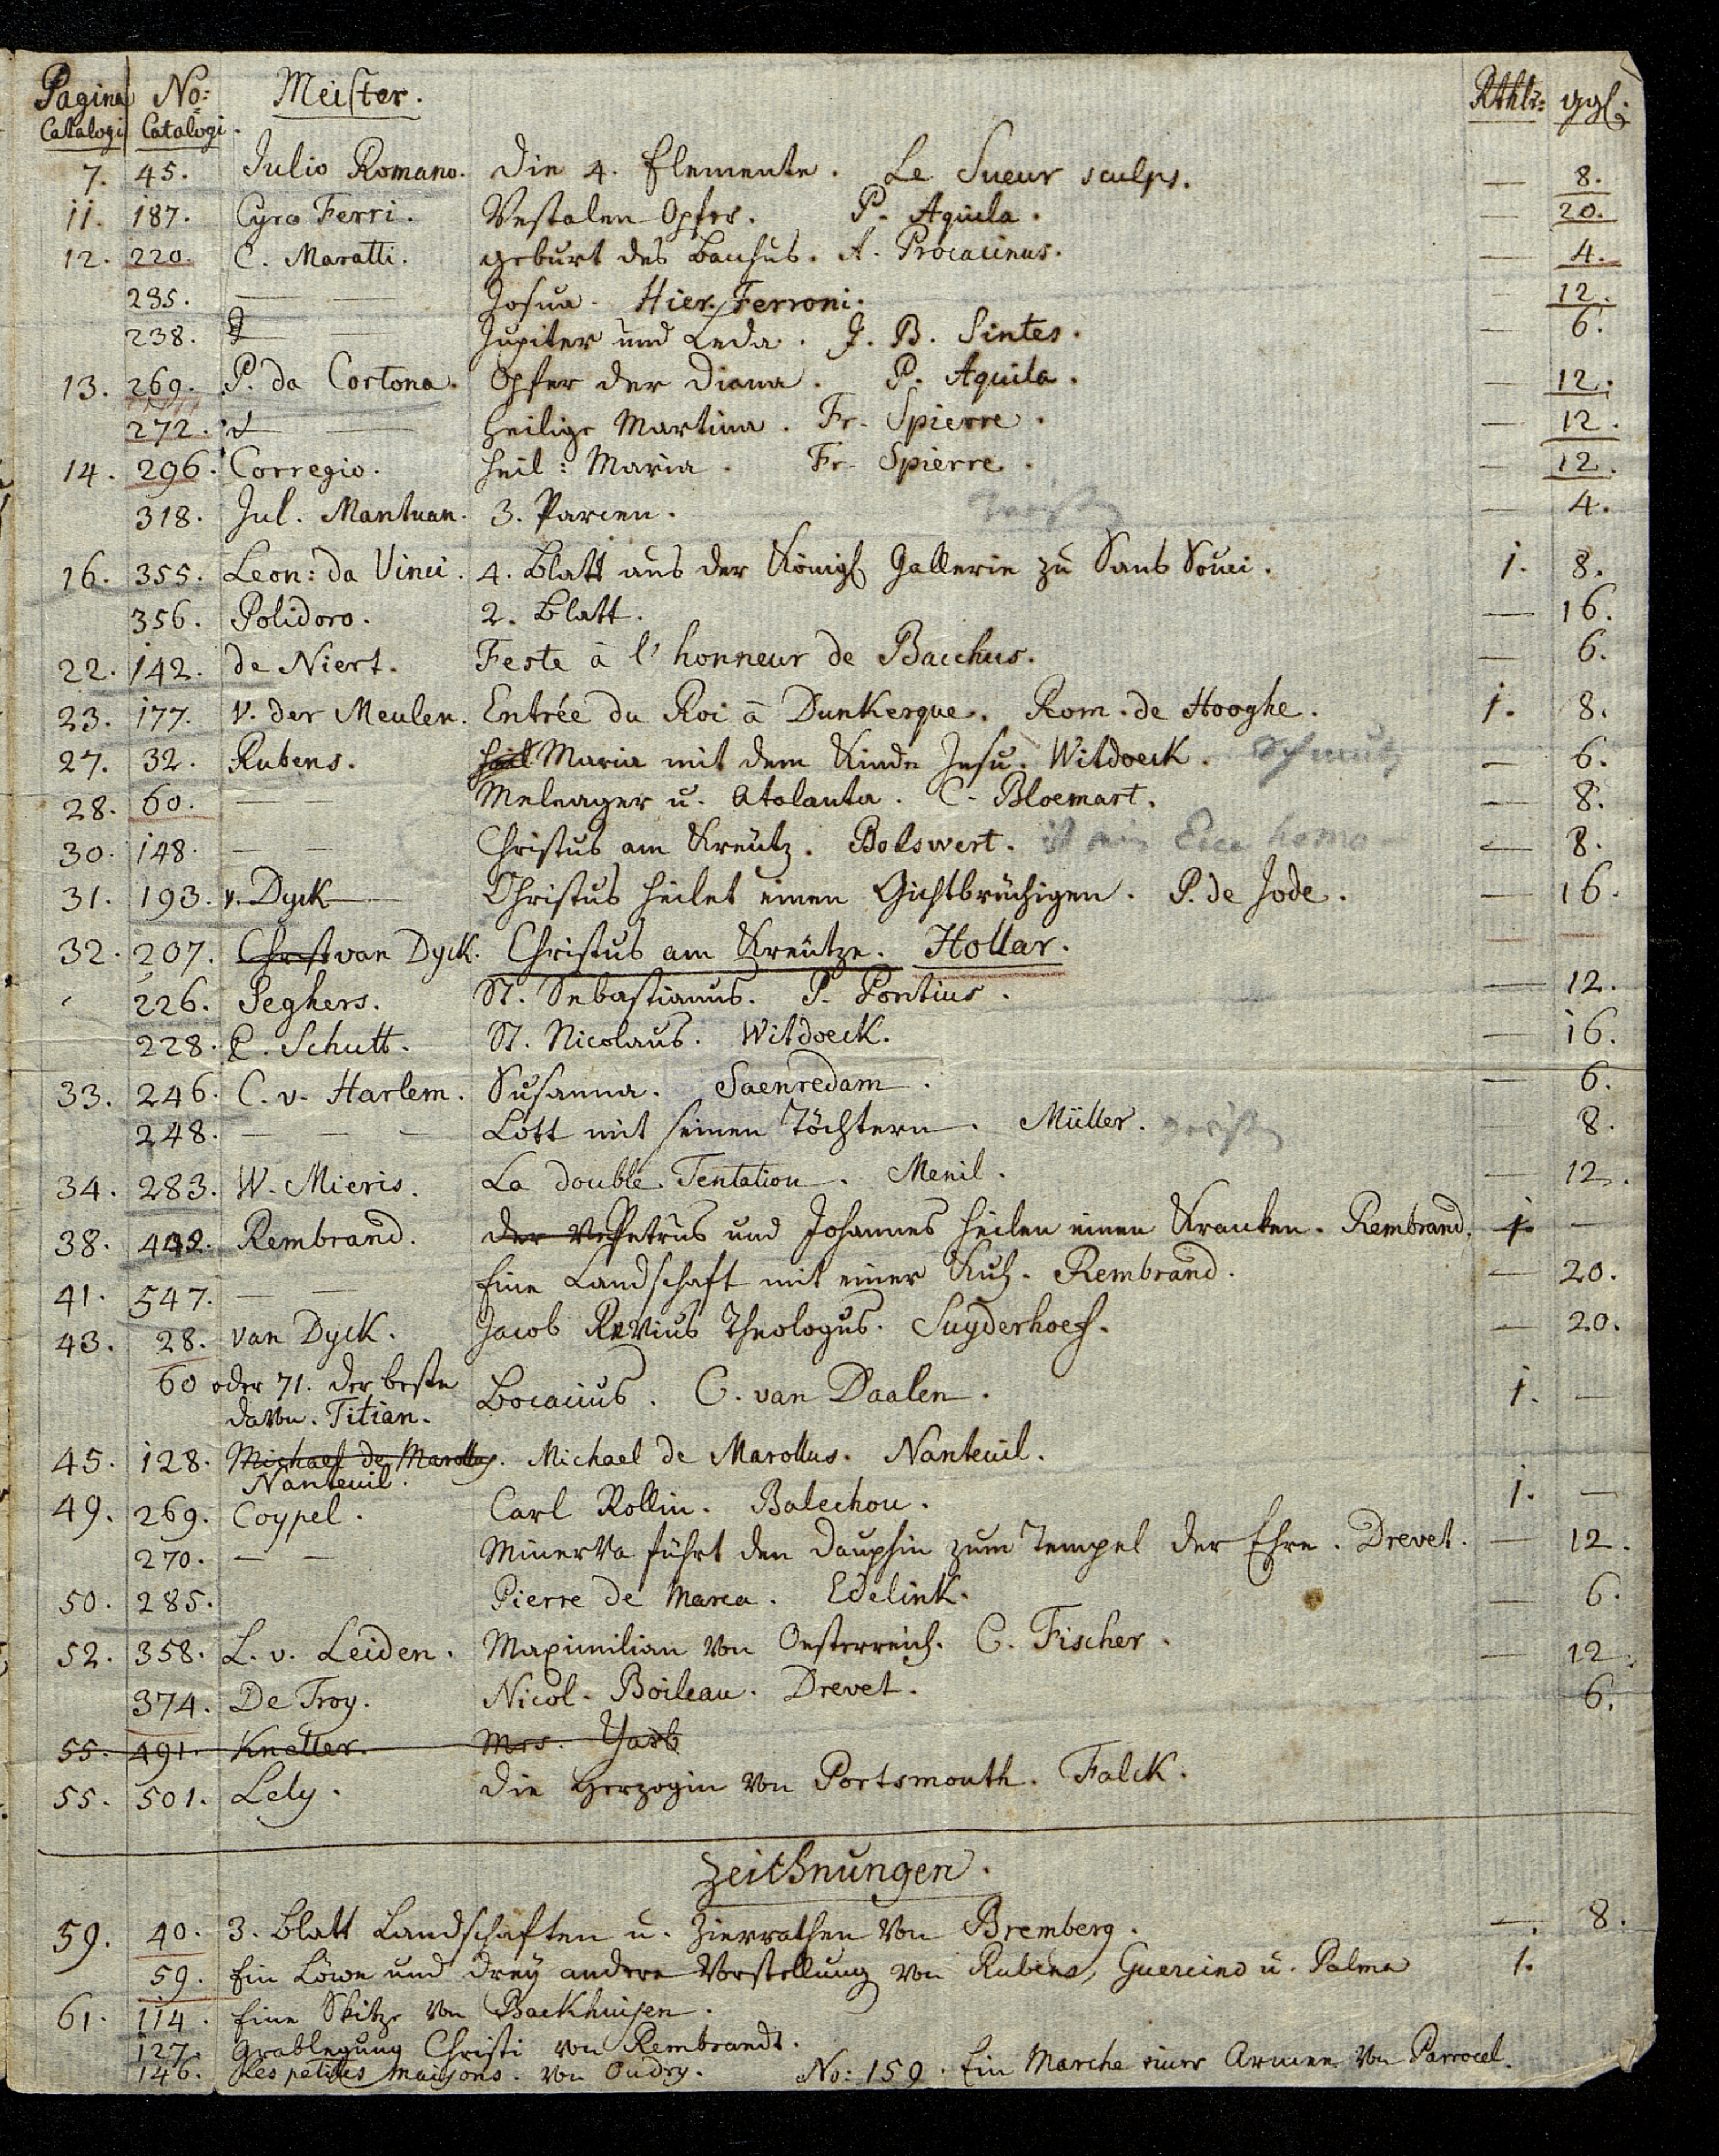 Pagina No: Meister. Rthlr: ggl:
Catalogi Catalogi.
7. 45. Julio Romano. Die 4. Elemente. Le Sueur sculps. — 8.
11. 187. Cyro Ferri. Vestalen Opfer. P. Aquila. — 20.
12. 220. C. Maratti. geburt des Bachus. A. Procacinus. — 4.
235. — — Josua. Hier. Ferroni. — 12.
238. — — Jupiter und Leda. J. B. Sintes. — 6.
13. 269. P. da Cortona. Opfer der Diana. P. Aquila. — 12.
272. — — Heilige Martina. Fr. Spierre. — 12.
14. 296. Corregio. heil: Maria. Fr. Spierre. — 12.
318. Jul. Mantuan. 3. Parcen. — 4.
16. 355. Leon: da Vinci. 4. Blatt aus der Königl Gallerie zu Sans Souci. 1. 8.
356. Polidoro. 2. Blatt. — 16.
22. 142. de Niert. Feste à l'honneur de Bacchus. — 6.
23. 177. V. der Meulen. Entrée du Roi à Dunkerque. Rom. de Hooghe. 1. 8.
27. 32. Rubens. heil Maria mit dem Kinde Jesu. Witdoeck. Schmutz — 6.
28. 60. — — Meleager u. Atalanta. C. Bloemart. — 8.
30. 148. — — Christus am Kreutz. Bolswert. ist ein Ecce homo — 8.
31. 193. v. Dyck — Christus heilet einen Gichtbrüchigen. P. de Jode. — 16.
32. 207. Christ van Dyck. Christus am Kreutze. Hollar. — —
226. Seghers. St. Sebastianus. P. Pontius. — 12.
228. C. Schutt. St. Nicolaus. Witdoeck. — 16.
33. 246. C. v. Harlem. Susanna. Saenredam. — 6.
248. — — — Lott mit seinen Töchtern. Müller. — 8.
34. 283. W. Mieris. La double Tentation. Menil. — 12.
38. 442. Rembrand. der Petrus und Johannes heilen einen Kranken. Rembrand. 1. —
41. 547. — — Eine Landschaft mit einer Kuh. Rembrand. — 20.
43. 28. van Dyck. Jacob Revius Theologus. Suyderhoef. — 20.
60 oder 71. der beste
davon. Titian. Bocacius. C. van Daalen. 1. —
45. 128. Michael de Marollus. Michael de Marollus. Nanteuil.
Nanteuil.
49. 269. Coypel. Carl Rollin. Balechou. 1. —
270. — — Minerva führt den Dauphin zum Tempel der Ehre. Drevet. — 12.
50. 285. Pierre de Marca. Edelink. — 6.
52. 358. L. v. Leiden. Maximilian von Oesterreich. C. Fischer. — 12.
374. De Troy. Nicol. Boileau. Drevet. 6.
55. 491. Kneller. Mrs.
55. 501. Lely. Die Herzogin von Portsmouth. Falck.
Zeichnungen.
59. 40. 3. Blatt Landschaften u. Zierrathen von Bremberg. —. 8.
59. Ein Löwe und drey andere Vorstellung von Rubens, Guercino u. Palma 1.
61. 114. Eine Skitze von Backhuisen.
127. Grablegung Christi von Rembrandt.
146. Les petites maisons. von Oudry. No: 159. Ein Marche einer Armee von Parrocel.